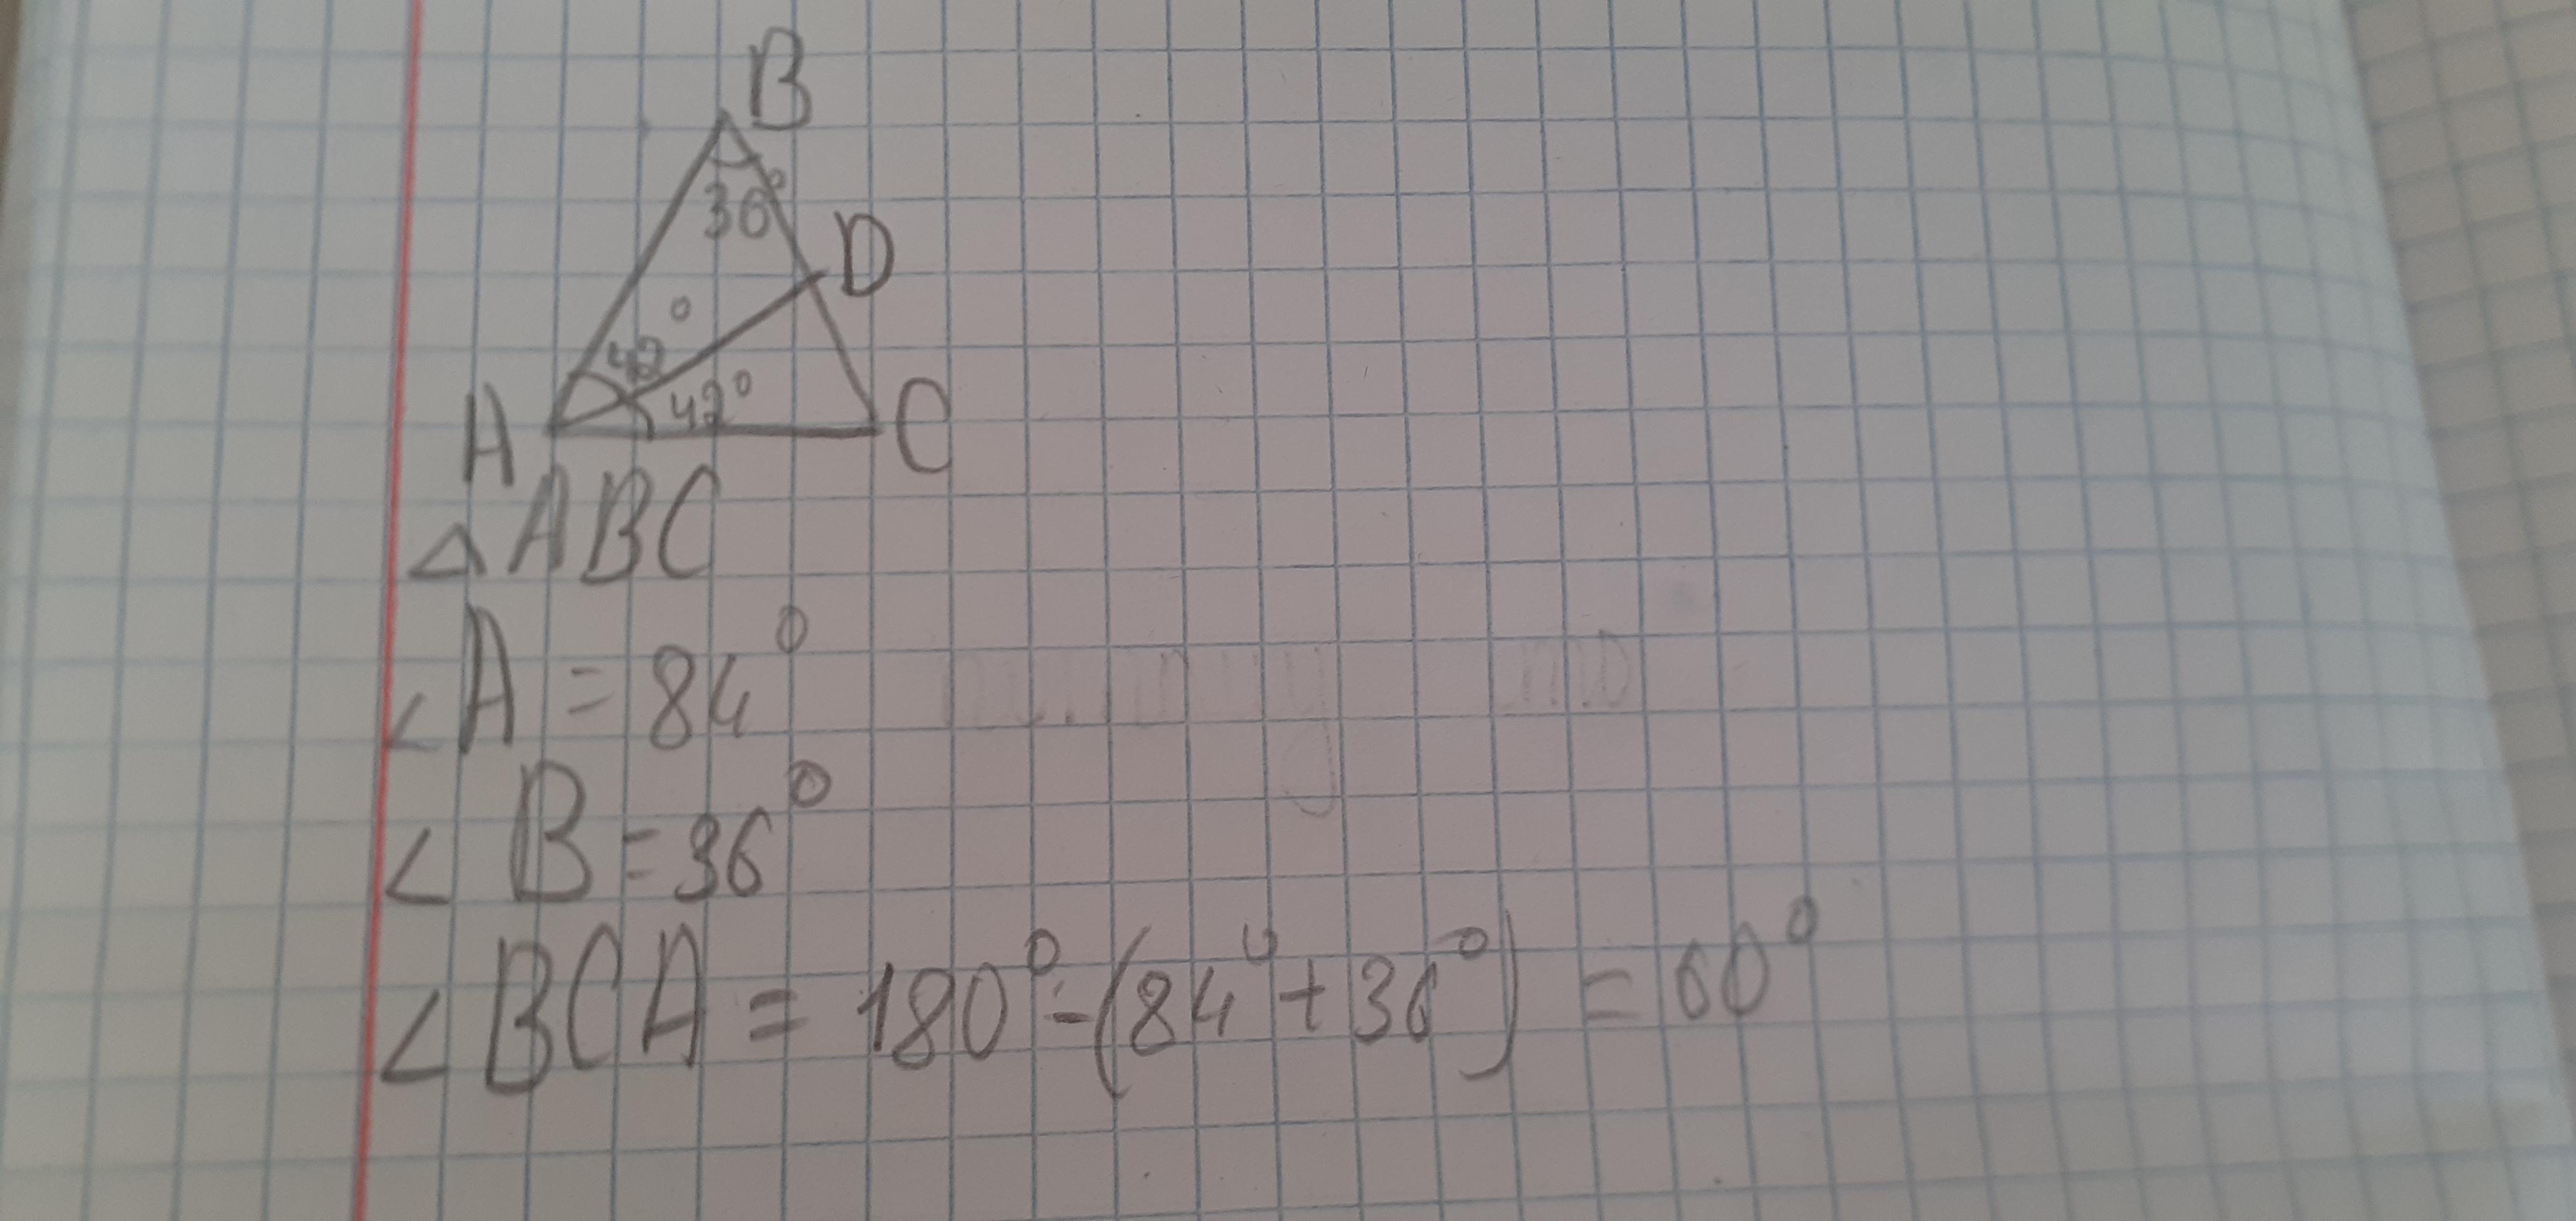 B
36°
D
42°
42°
A
C
△ABC
<A = 84°
<B = 36°
<BCA = 180° - (84° + 36°) = 60°